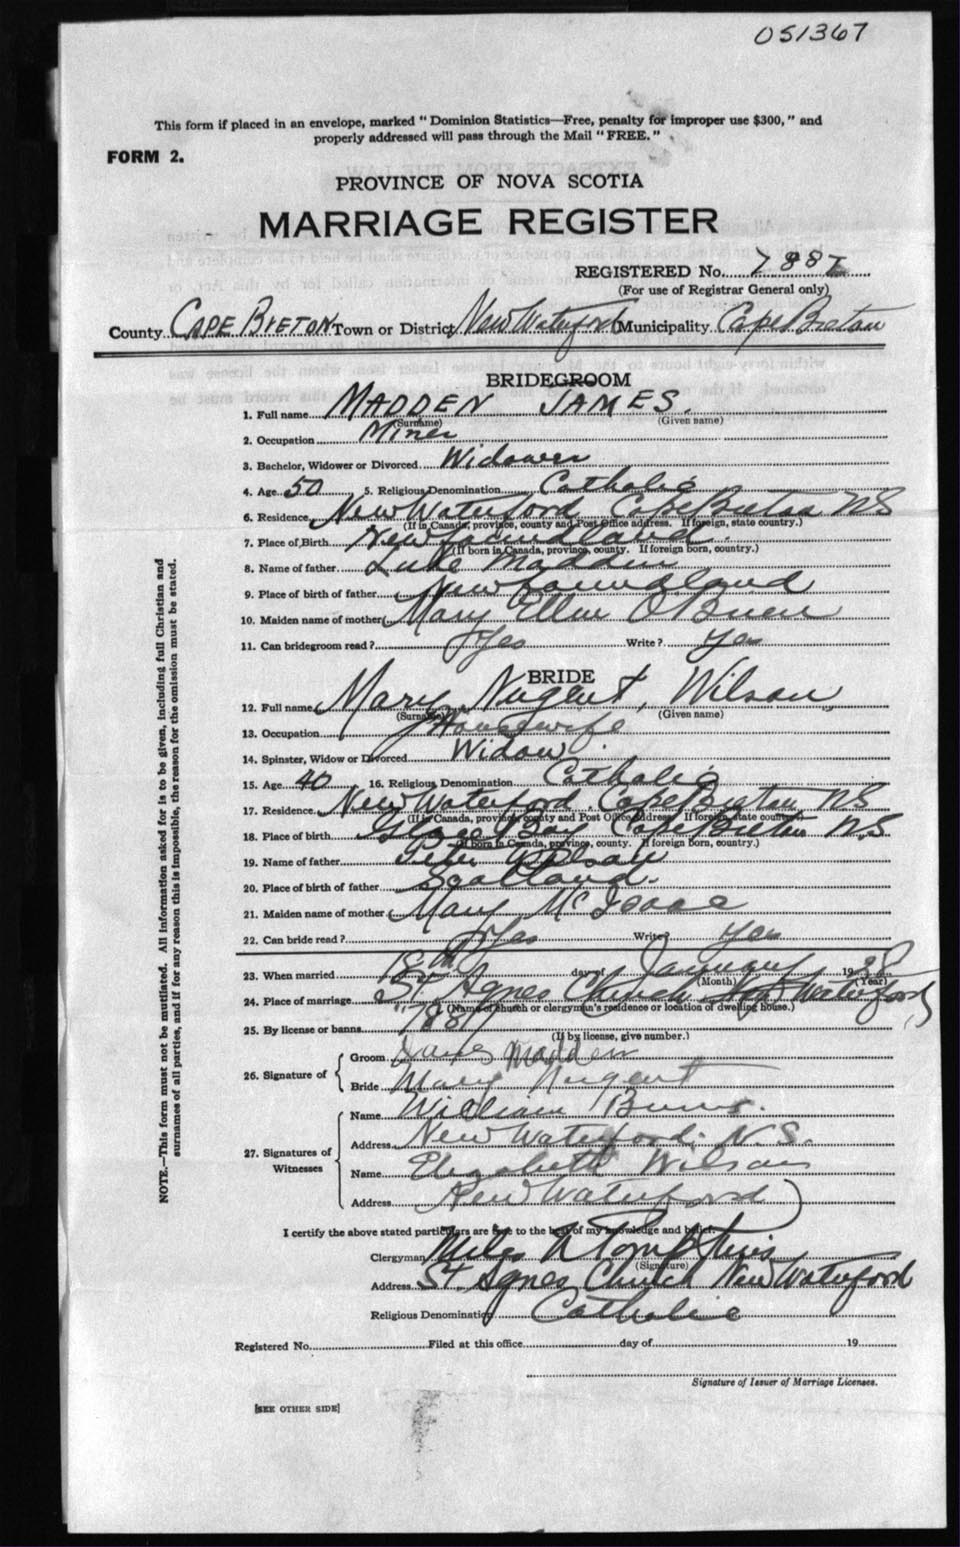 051367
This form if placed in an envelope, marked "Dominion Statistics—Free, penalty for improper use $300," and
properly addressed will pass through the Mail "FREE."
FORM 2.
PROVINCE OF NOVA SCOTIA
MARRIAGE REGISTER
REGISTERED No. 7882
(For use of Registrar General only)
County CAPE BRETON Town or District New Waterford Municipality Cape Breton
BRIDEGROOM
1. Full name MADDEN JAMES.
(Surname) (Given name)
2. Occupation Miner
3. Bachelor, Widower or Divorced Widower
4. Age 50 5. Religious Denomination Catholic
6. Residence New Waterford Cape Breton NS
(If in Canada, province, county and Post Office address. If foreign, state country.)
7. Place of Birth Newfoundland.
(If born in Canada, province, county. If foreign born, country.)
8. Name of father Luke Madden
9. Place of birth of father Newfoundland
10. Maiden name of mother Mary Ellen O'Brien
11. Can bridegroom read? Yes Write? Yes
BRIDE
12. Full name Mary Nugent, Wilson
(Surname) (Given name)
13. Occupation Housewife
14. Spinster, Widow or Divorced Widow.
15. Age 40 16. Religious Denomination Catholic
17. Residence New Waterford Cape Breton NS
(If in Canada, province, county and Post Office address. If foreign, state country.)
18. Place of birth Glace Bay Cape Breton N.S
(If born in Canada, province, county. If foreign born, country.)
19. Name of father Peter Wilson
20. Place of birth of father Scotland.
21. Maiden name of mother Mary McIsaac
22. Can bride read? Yes Write? Yes
23. When married 18th day of January 1938
(Month) (Year)
24. Place of marriage St Agnes Church New Waterford
(Name of church or clergyman's residence or location of dwelling house.)
25. By license or banns
(If by license, give number.)
26. Signature of
Groom James Madden
Bride Mary Nugent
27. Signatures of Witnesses
Name William Burns.
Address New Waterford. N.S.
Name Elizabeth Wilson
Address New Waterford
I certify the above stated particulars are true to the best of my knowledge and belief.
Clergyman Miles N Tompkins
(Signature)
Address St. Agnes Church New Waterford
Religious Denomination Catholic
Registered No. Filed at this office day of 19
Signature of Issuer of Marriage Licenses.
[SEE OTHER SIDE]
NOTE.—This form must not be mutilated. All information asked for is to be given, including full Christian and
surnames of all parties, and if for any reason this is impossible, the reason for the omission must be stated.